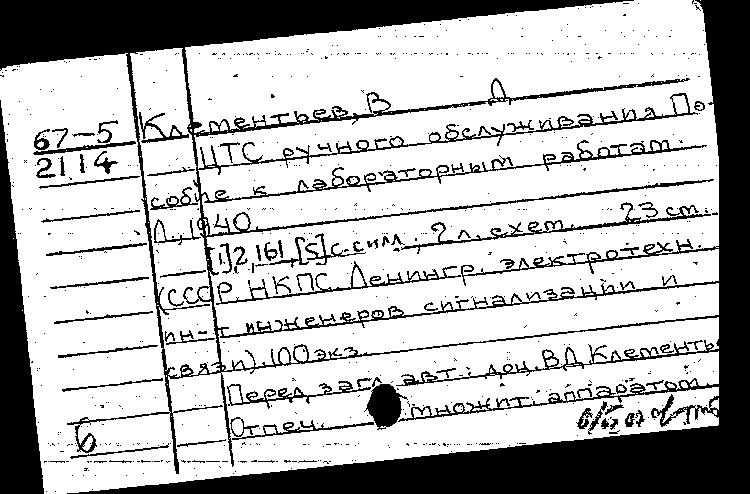 67-5 Клементьев, В Д
2114 ЦТС ручного обслуживания По-
собие к лабораторным работам.
Л., 1940.
[1]2,161,[5]с. илл., 2 л. схем. 23 см.
(СССР. НКПС. Ленингр. электротехн.
ин-т инженеров сигнализации и
связи). 100 экз.
Перед загл. авт.: доц. В.Д. Клементь
Отпеч. множит. аппаратом.
б